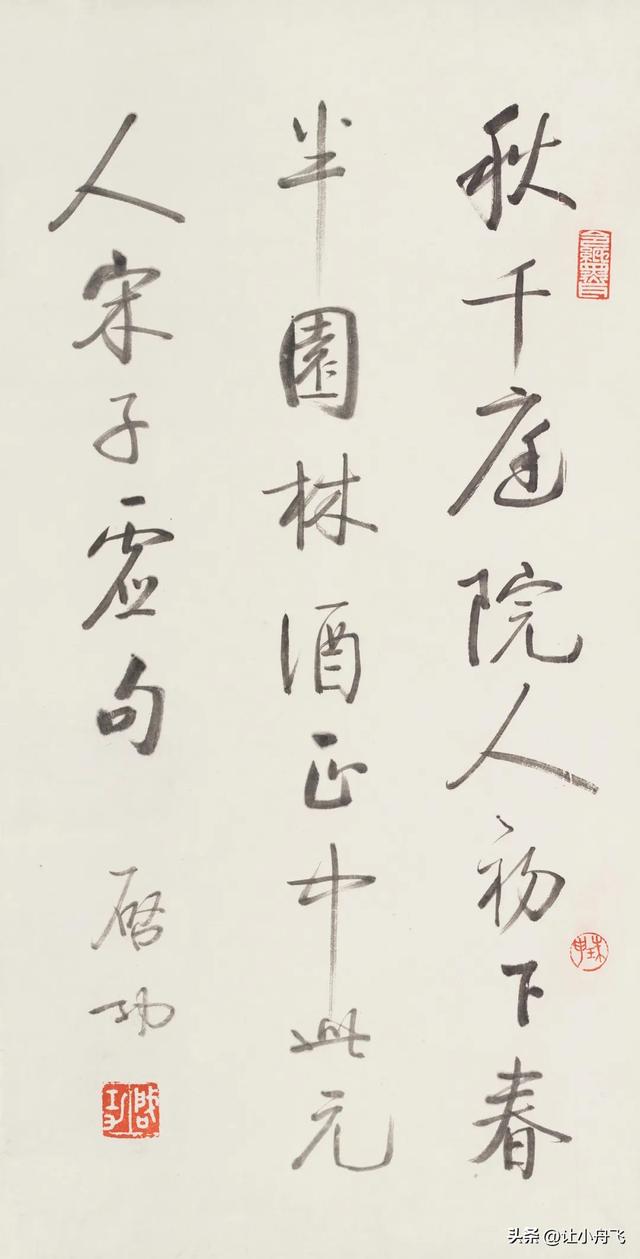 秋千庭院人初下春
半園林酒正中此元
人宋子虚句
啓功
啟功
头条 @让小舟飞